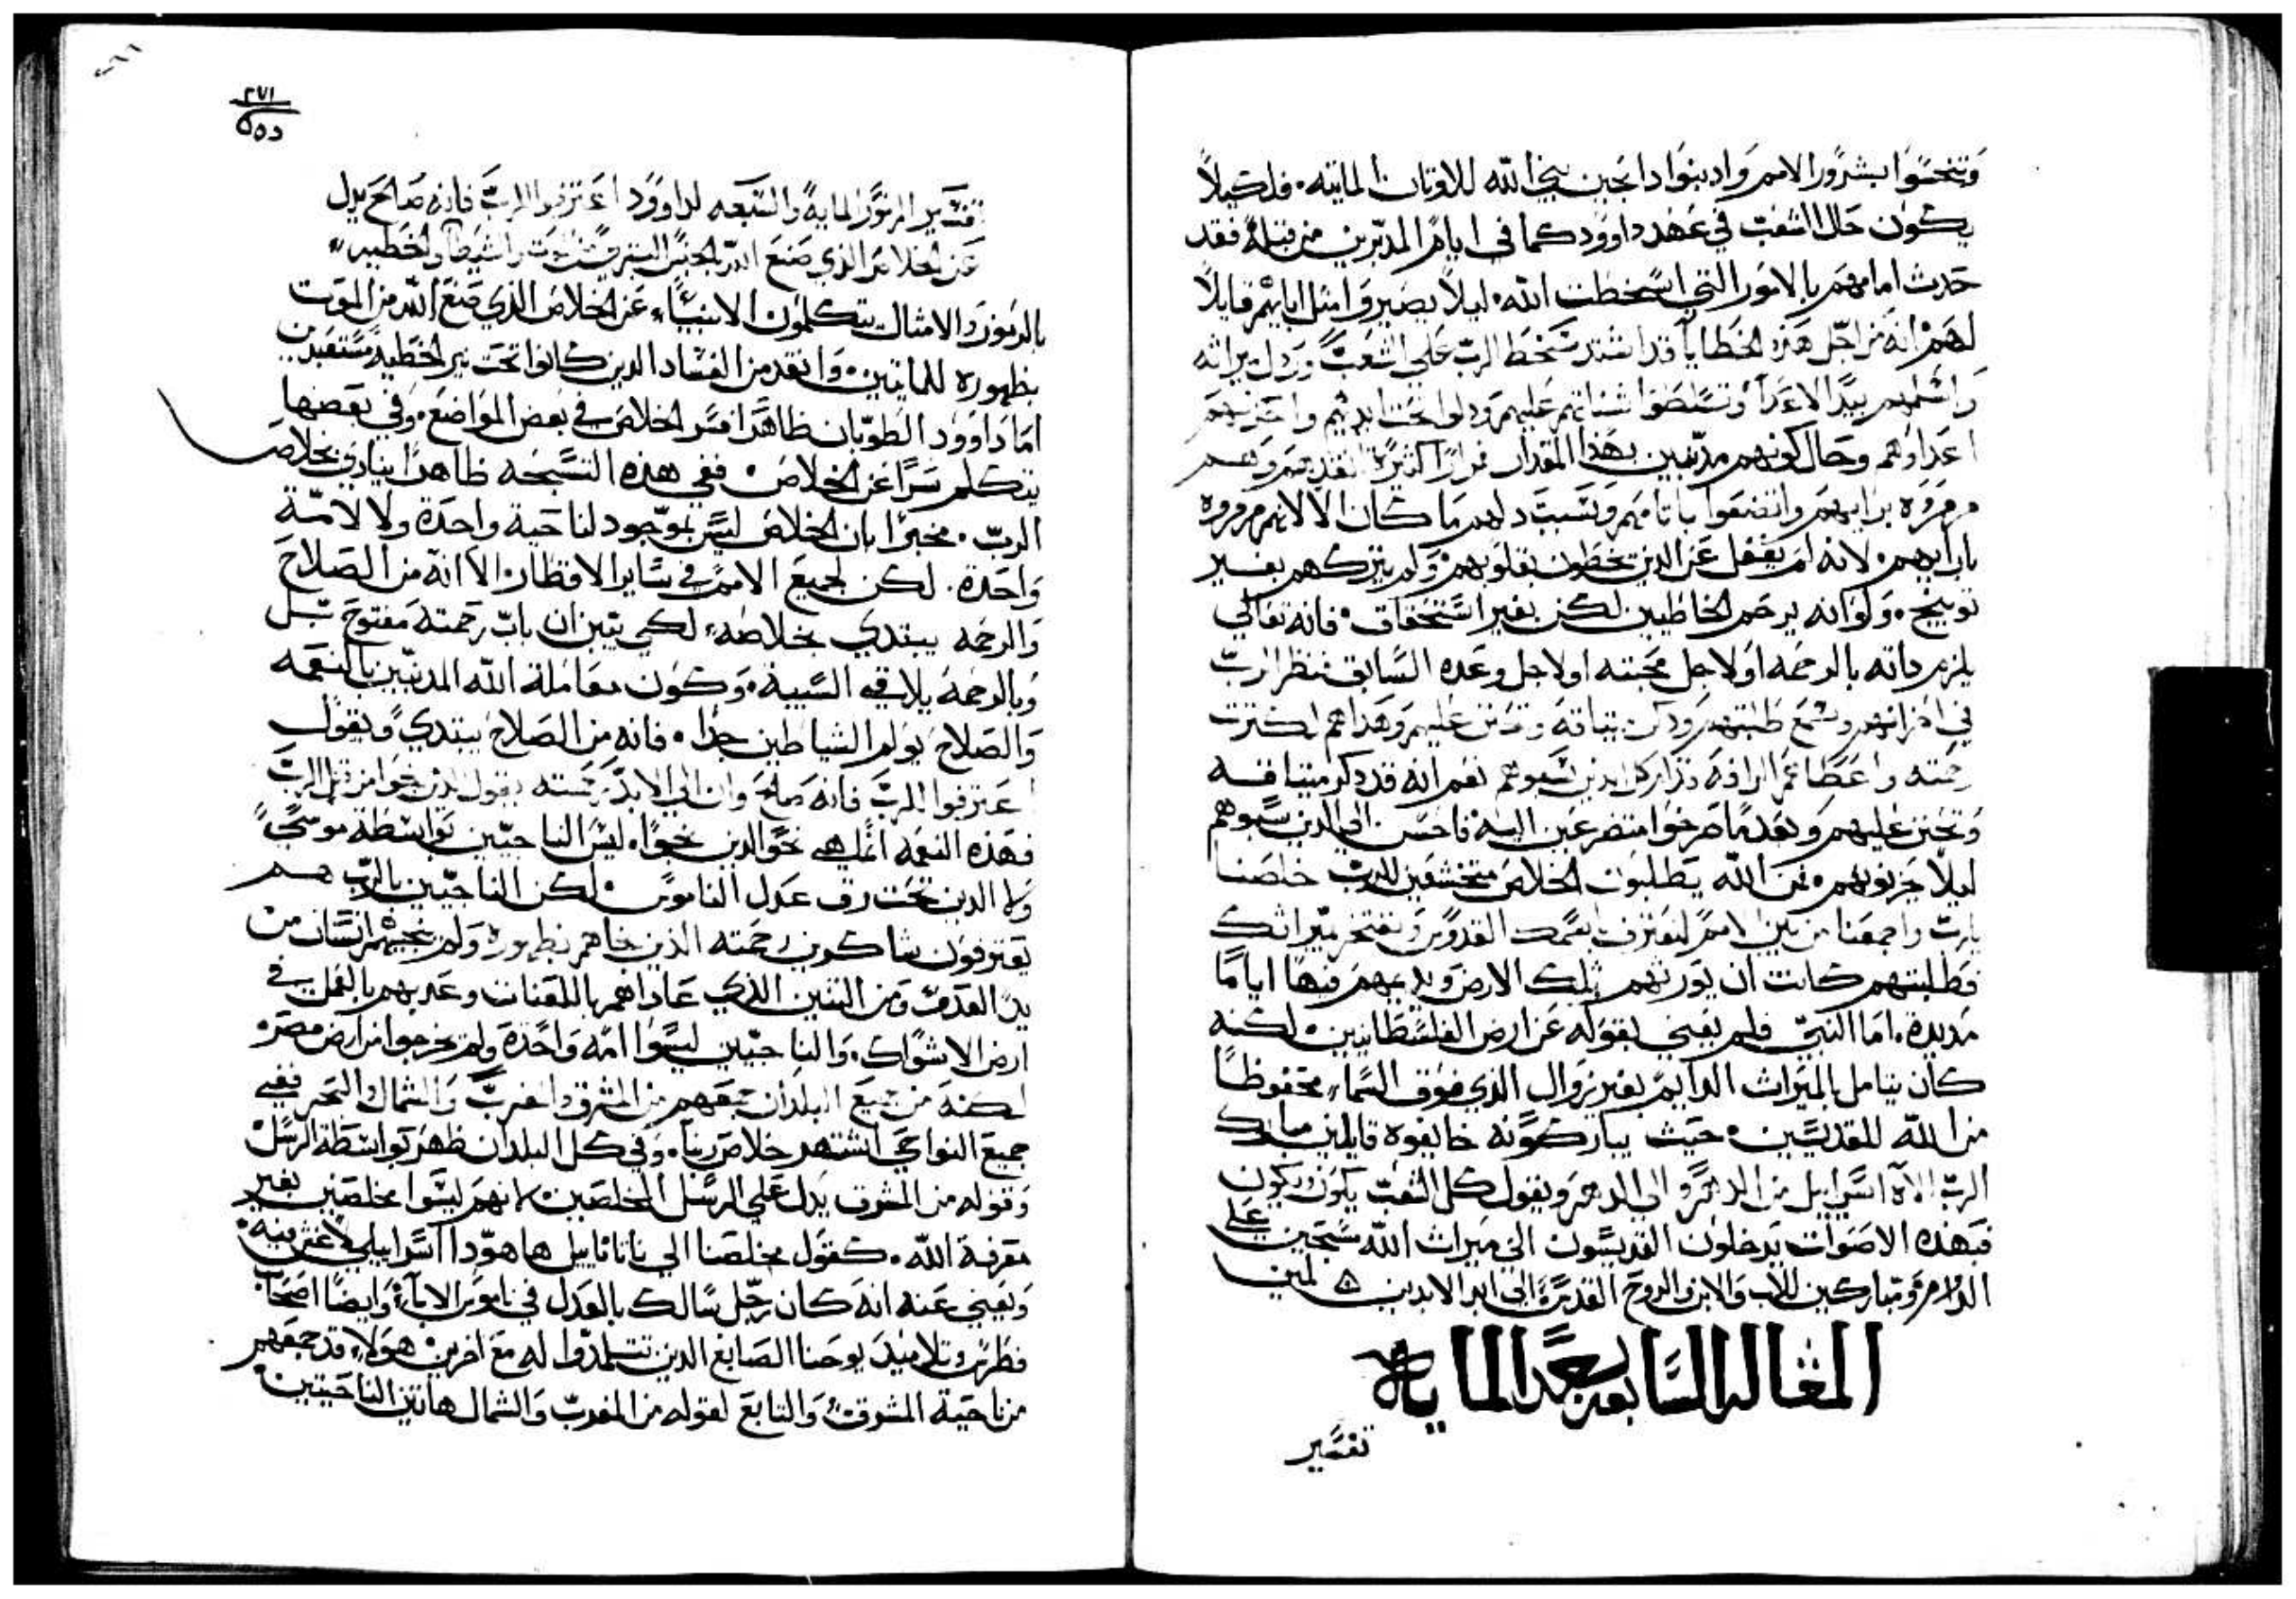 وتنجسوا بشرور الامم واذبنوا ذابحين بني الله للاوثان المايته. فلكيلا
يكون حال الشعب في عهد داوود كما في ايام المدبرين من قبله فقد
حدث امامهم بالامور التي اسخطت الله. ليلا يصيروا مثل ابايهم قايلا
لهم انه من اجل هذه الخطايا قد اشتد سخط الرب على الشعب ورذل ميراثه
واسلمهم بيد الاعدا وتسلطوا شناتهم عليهم وذلوا تحت ايديهم واحزنهم
اعداوهم وحال كونهم مذنبين بهذا المقدار مرارا كثيرة انقذهم وهم
مرمروه برايهم واتضعوا باثامهم وتسبب لهم ما كان الا لانهم مرمروه
بارايهم. لانه لم يغفل عن الذين يخطون بقلوبهم ولم يتركهم بغير
توبيخ. ولو انه يرحم الخاطيين لكن بغير استحقاق. فانه تعالى
يلزم ذاته بالرحمه اولا جل محبته اولا جل وعده السابق فنظر الرب
في احزانهم وسمع طلبتهم وذكر ميثاقه وتحنن عليهم وهداهم لكثرت
رحمته واعطاهم الرافه قدام كل الذين سبوهم نعم انه قد ذكر ميثاقه
وتحنن عليهم وبعدما صرخوا متضرعين اليه فاحسن الى الذين سبوهم
ليلا يحزنونهم. فمن الله يطلبون الخلاص متخشعين للرب خلصنا
يارب واجمعنا من بين الامم لنعترف باسمك القدوس ونفتخر بميراثك
فطلبتهم كانت ان يورثهم تلك الارض ويديمهم فيها اياما
مديدة. اما النبي فلم يعني بقوله عن ارض الفلسطانيين. لكنه
كان يتامل بالميراث الدايم بغير زوال الذي فوق السماء محفوظا
من الله للقديسين. حيث يباركونه خايفوه قايلين مبارك
الرب الاه اسراييل من الدهر والى الدهر ويقول كل الشعب يكون ويكون
فبهذه الاصوات يدخلون القديسون الى ميراث الله مسبحين على
الدوام ومباركين للاب والابن والروح القدس الى ابد الابدين امين
المقاله السابعه بعد المايه
تفسير
٢٧١
تفسير المزمور المايه والسبعه لداوود اعترفوا للرب فانه صالح يدل
عن الخلاص الذي صنع الله لجنس البشر من الموت والشيطان والخطيه
بالرموز والامثال تتكلمون الانبياء عن الخلاص الذي صنع الله من الموت
بظهوره للمايتين. وانقذ من الفساد الذين كانوا تحت نير الخطيه مستعبدين
اما داوود الطوبان ظاهرا فسر الخلاص في بعض المواضع. وفي بعضها
يتكلم سرا عن الخلاص. ففي هذه التسبحه ظاهرا ينادي بخلاص
الرب. مخبرا بان الخلاص ليس بموجود لناحية واحدة ولا لامة
واحدة. لكن لجميع الامم في ساير الاقطار. الا انه من الصلاح
والرحمه يبتدي بخلاصه. لكي يتبين ان باب رحمته مفتوح بل
وبالرحمة يلاقي السبية. وكون معاملة الله المذنبين بالنعمه
والصلاح يولم الشياطين جدا. فانه من الصلاح يبتدي ويقول
اعترفوا للرب فانه صالح وان الى الابد رحمته يقول الذين نجوا من قبل الرب
فهذه النعمه انما هي نحو الذين نجوا. ليس الناجيين بواسطة موسى
ولا الذين تحت رق عدل الناموس. لكن الناجيين بالرب هم
يعترفون شاكرين رحمته الذين نجاهم بظهوره ولم ينجيهم انسان من
يد العدو. ومن التنين الذي عاداهم باللعنات وعذبهم بالعمل في
ارض الاشواك. والناجيين ليسوا امه واحدة ولم يخرجوا من ارض مصر.
لكنه من جميع البلدان جمعهم من المشرق والمغرب والشمال والبحر ففي
جميع النواحي اشتهر خلاص ربنا. وفي كل البلدان ظهر بواسطة الرسل
وقوله من المشرق يدل على الرسل المخلصين. لانهم ليسوا مخلصين بغير
معرفة الله. كقول مخلصنا الى ناثانابيل ها هوذا اسراييلي لا غش فيه.
ويعني عنه انه كان رجل سالك بالعدل في ناموس الاباء. وايضا اصحاب
بطرس وتلاميذ يوحنا الصابغ الذين تتلمذوا له مع اخرين هولاء قد جمعهم
من ناحية المشرق. والتابع لقوله من المغرب والشمال هاتين الناحيتين.